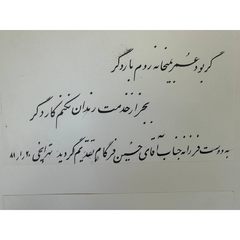 گر بود عمر بمیخانه روم بار دگر
بجز از خدمت رندان نکنم کار دگر
به دوست فرزانه جناب آقای حسین فرکام تقدیم گردید